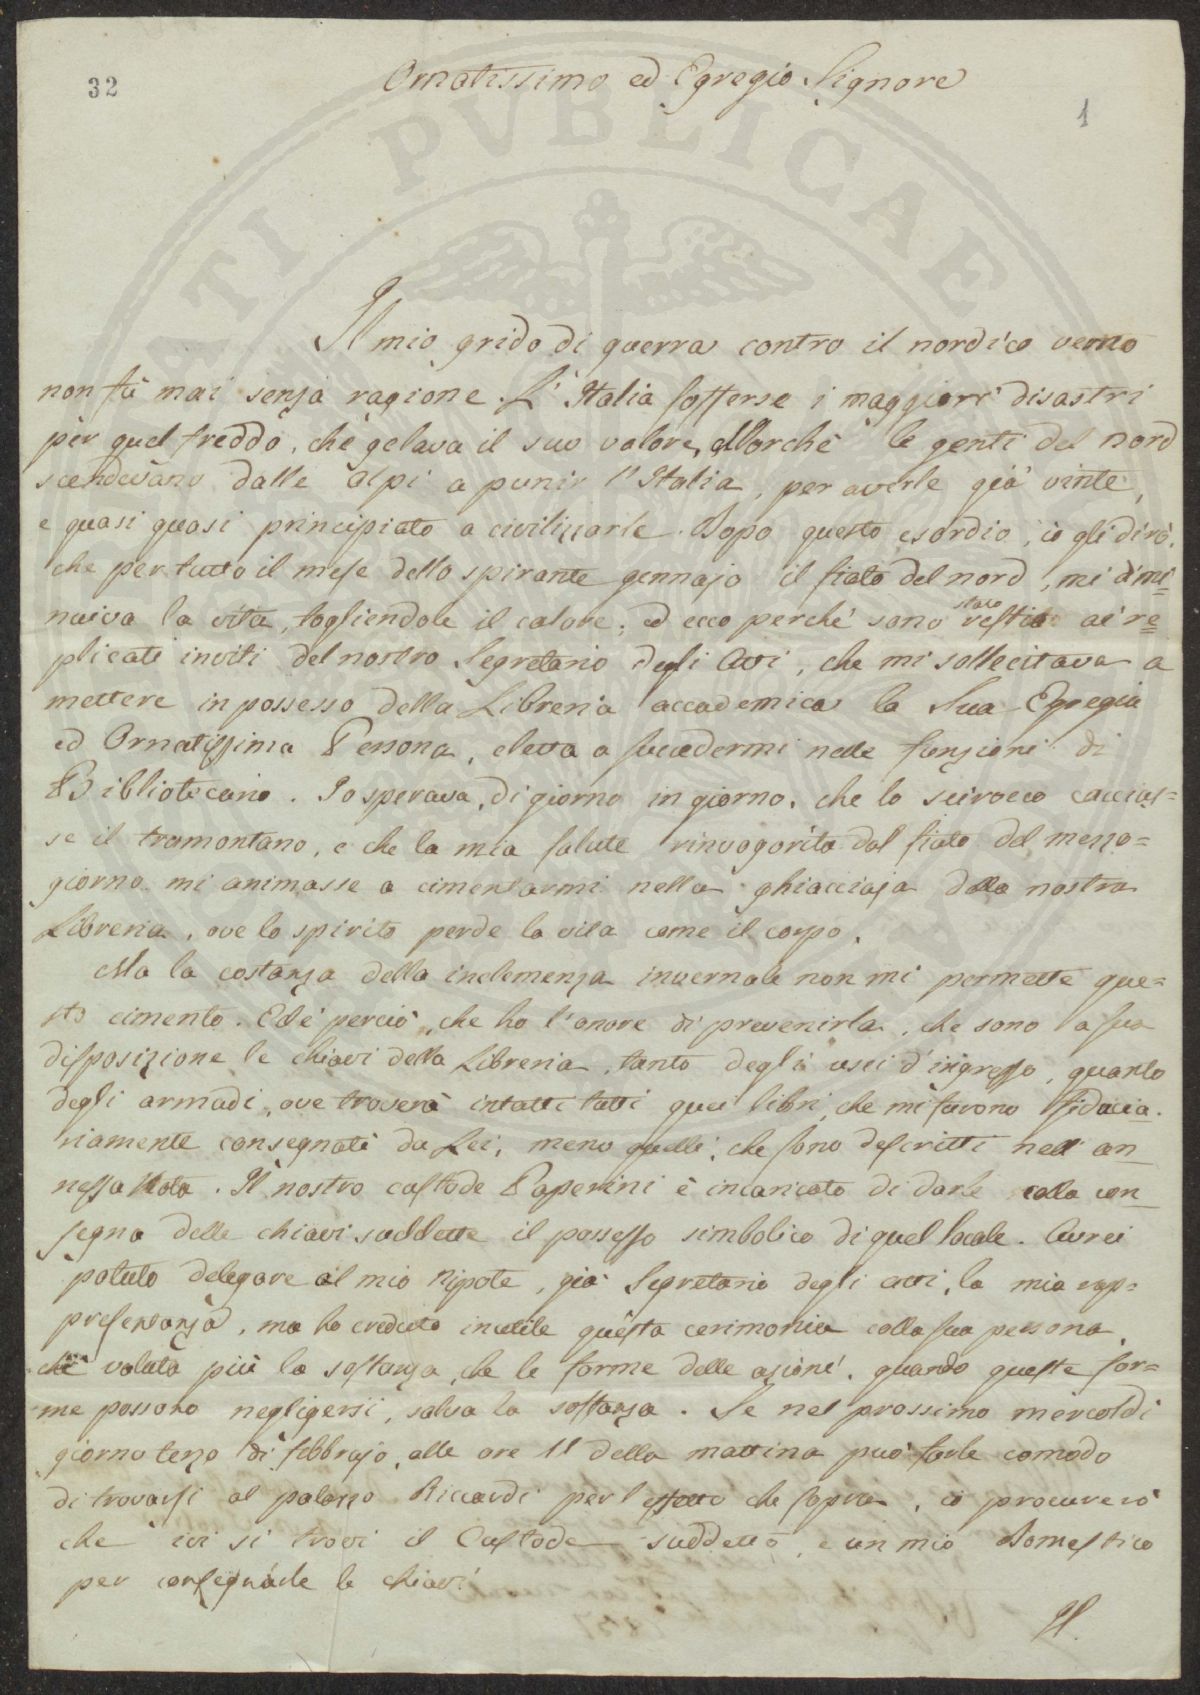 32
Ornatissimo ed Egregio Signore
1
Il mio grido di guerra contro il nordico verno
non fù mai senza ragione. L'Italia sofferse i maggiori disastri
per quel freddo, che gelava il suo valore, allorchè le genti del nord
scendevano dalle Alpi a punir l'Italia, per averle già vinte,
e quasi quasi principiato a civilizzarle. Dopo questo esordio, io gli dirò,
che per tutto il mese dello spirante gennajo il fiato del nord, mi dimi=
nuiva la vita, togliendole il calore; ed ecco perchè sono stato restio ai re=
plicati inviti del nostro Segretario degli Atti, che mi sollecitava a
mettere in possesso della Libreria accademica la Sua Egregia
ed Ornatissima Persona, eletta a succedermi nelle funzioni di
Bibliotecario. Io sperava, di giorno in giorno, che lo scirocco caccias=
se il tramontano, e che la mia salute rinvogorita dal fiato del mezzo=
giorno mi animasse a cimentarmi nella ghiacciaja della nostra
Libreria, ove lo spirito perde la vita come il corpo.
Ma la costanza della inclemenza invernale non mi permette que=
sto cimento. Ed è perciò, che ho l'onore di prevenirla, che sono a sua
disposizione le chiavi della Libreria, tanto degli usci d'ingresso, quanto
degli armadi, ove troverà intatti tutti quei libri, che mi furono fiducia=
riamente consegnati da Lei, meno quelli, che sono descritti nell'an=
nessa Nota. Il nostro custode Paperini è incaricato di darle colla con=
segna delle chiavi suddette il possesso simbolico di quel locale. Avrei
potuto delegare al mio Nipote, già Segretario degli atti, la mia rap=
presentanza, ma ho creduto inutile questa cerimonia colla sua persona,
che valuta più la sostanza, che le forme delle azioni, quando queste for=
me possono negligersi, salva la sostanza. Se nel prossimo mercoldì
giorno terzo di febbrajo, alle ore 11 della mattina può farle comodo
di trovarsi al palazzo Riccardi per l'effetto che sopra, io procurerò
che ivi si trovi il Custode suddetto, e un mio Domestico
per consegnarle le chiavi.
Il